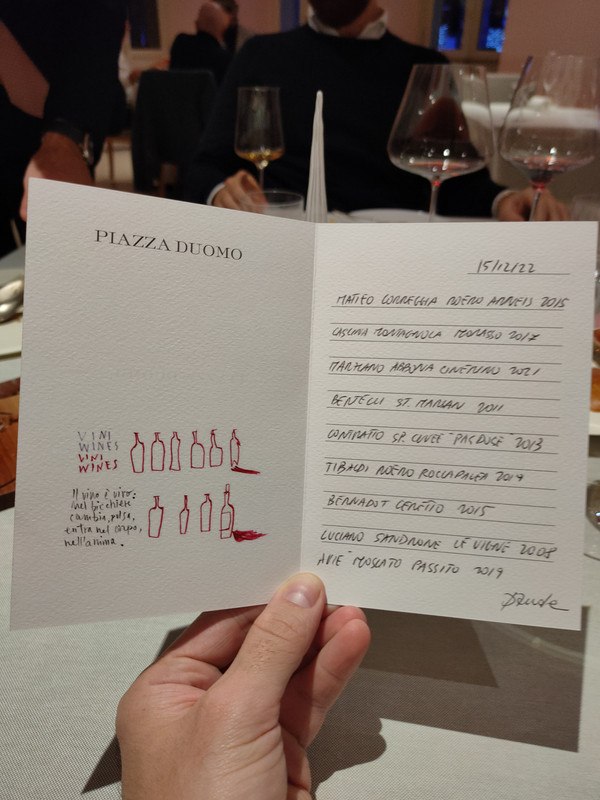 PIAZZA DUOMO
VINI
WINES
VINI
WINES
Il vino è vivo:
nel bicchiere
cambia, pulsa,
entra nel corpo,
nell'anima.
15/12/22
MATTEO CORREGGIA ROERO ARNEIS 2015
CASCINA MONTAGNOLA MORASSO 2017
MARZIANO ABBONA CINERINO 2021
BERTELLI ST. MARSAN 2011
CONTRATTO SP. CUVEE "PAS DOSÉ 2013
TIBALDI ROERO ROCCAPALEA 2019
BERNADOT CERETTO 2015
LUCIANO SANDRONE LE VIGNE 2008
MOSCATO PASSITO 2019